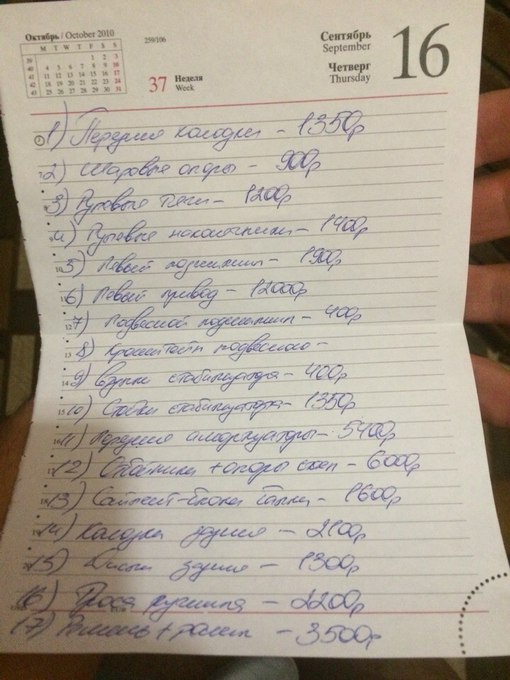 Октябрь / October 2010
M T W T F S S
39 1 2 3
40 4 5 6 7 8 9 10
41 11 12 13 14 15 16 17
42 18 19 20 21 22 23 24
43 25 26 27 28 29 30 31
259/106
37 Неделя
Week
Сентябрь
September
Четверг
Thursday
16
1) Передние колодки - 1350р
2) Шаровые опоры - 900р
3) Рулевые тяги - 1200р
4) Рулевые наконечники - 1400р
5) Левый подшипник - 1900р
6) Левый привод - 12000р
7) Подвесной подшипник - 400р
8) Кронштейн подвесного -
9) Втулки стабилизатора - 400р
10) Стойки стабилизатора - 1350р
11) Передние амортизаторы - 5400р
12) Отбойники + опоры - 6000р
13) Сайлент-блоки - 1600р
14) Колодки задние - 2100р
15) Диски задние - 1300р
16) Троса ручника - 2200р
17) Ремень + ролик - 3500р